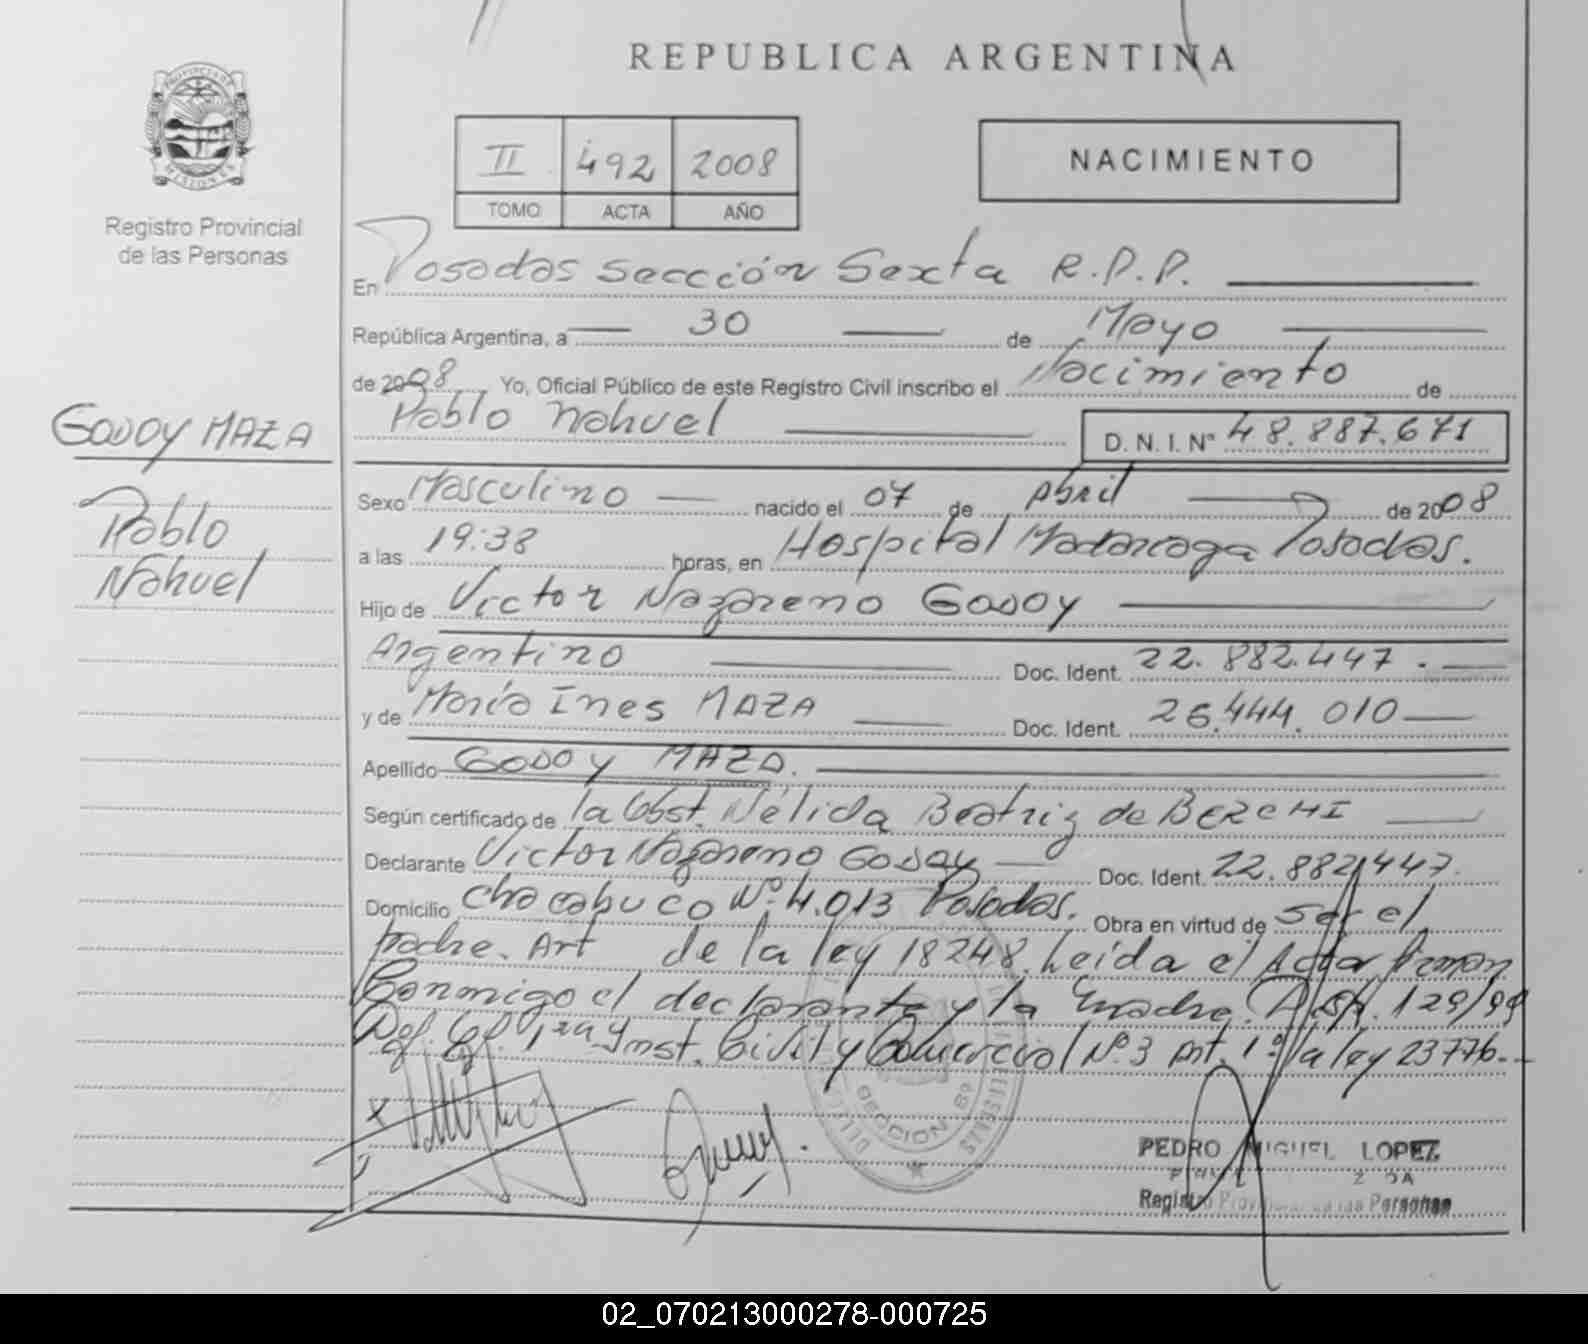 REPUBLICA ARGENTINA
PROVINCIA DE
MISIONES
Registro Provincial
de las Personas
II 492 2008
TOMO ACTA AÑO
NACIMIENTO
En Posadas Sección Sexta R.P.P.
República Argentina, a 30 de Mayo
de 2008 Yo, Oficial Público de este Registro Civil inscribo el Nacimiento de
Pablo Nahuel D. N. I. Nº 48.887.671
GODOY MAZA
Pablo
Nahuel
Sexo Masculino nacido el 07 de Abril de 2008
a las 19:38 horas, en Hospital Madariaga Posadas.
Hijo de Victor Nazareno GODOY
Argentino Doc. Ident. 22.882.447.
y de María Ines MAZA Doc. Ident. 26.444.010
Apellido GODOY MAZA.
Según certificado de la Obst. Nélida Beatriz de BERCHI
Declarante Victor Nazareno Godoy Doc. Ident. 22.882.447.
Domicilio Chacabuco Nº 4.013 Posadas. Obra en virtud de ser el
padre. Art de la ley 18248. Leída el Acta firman
Conmigo el declarante y la madre. Disp. 129/99
1ra Inst. Civil y Comercial Nº 3 Art. 1º la ley 23776.
x
SECCION 6º
PEDRO MIGUEL LOPEZ
Registro Provincial de las Personas
02_070213000278-000725